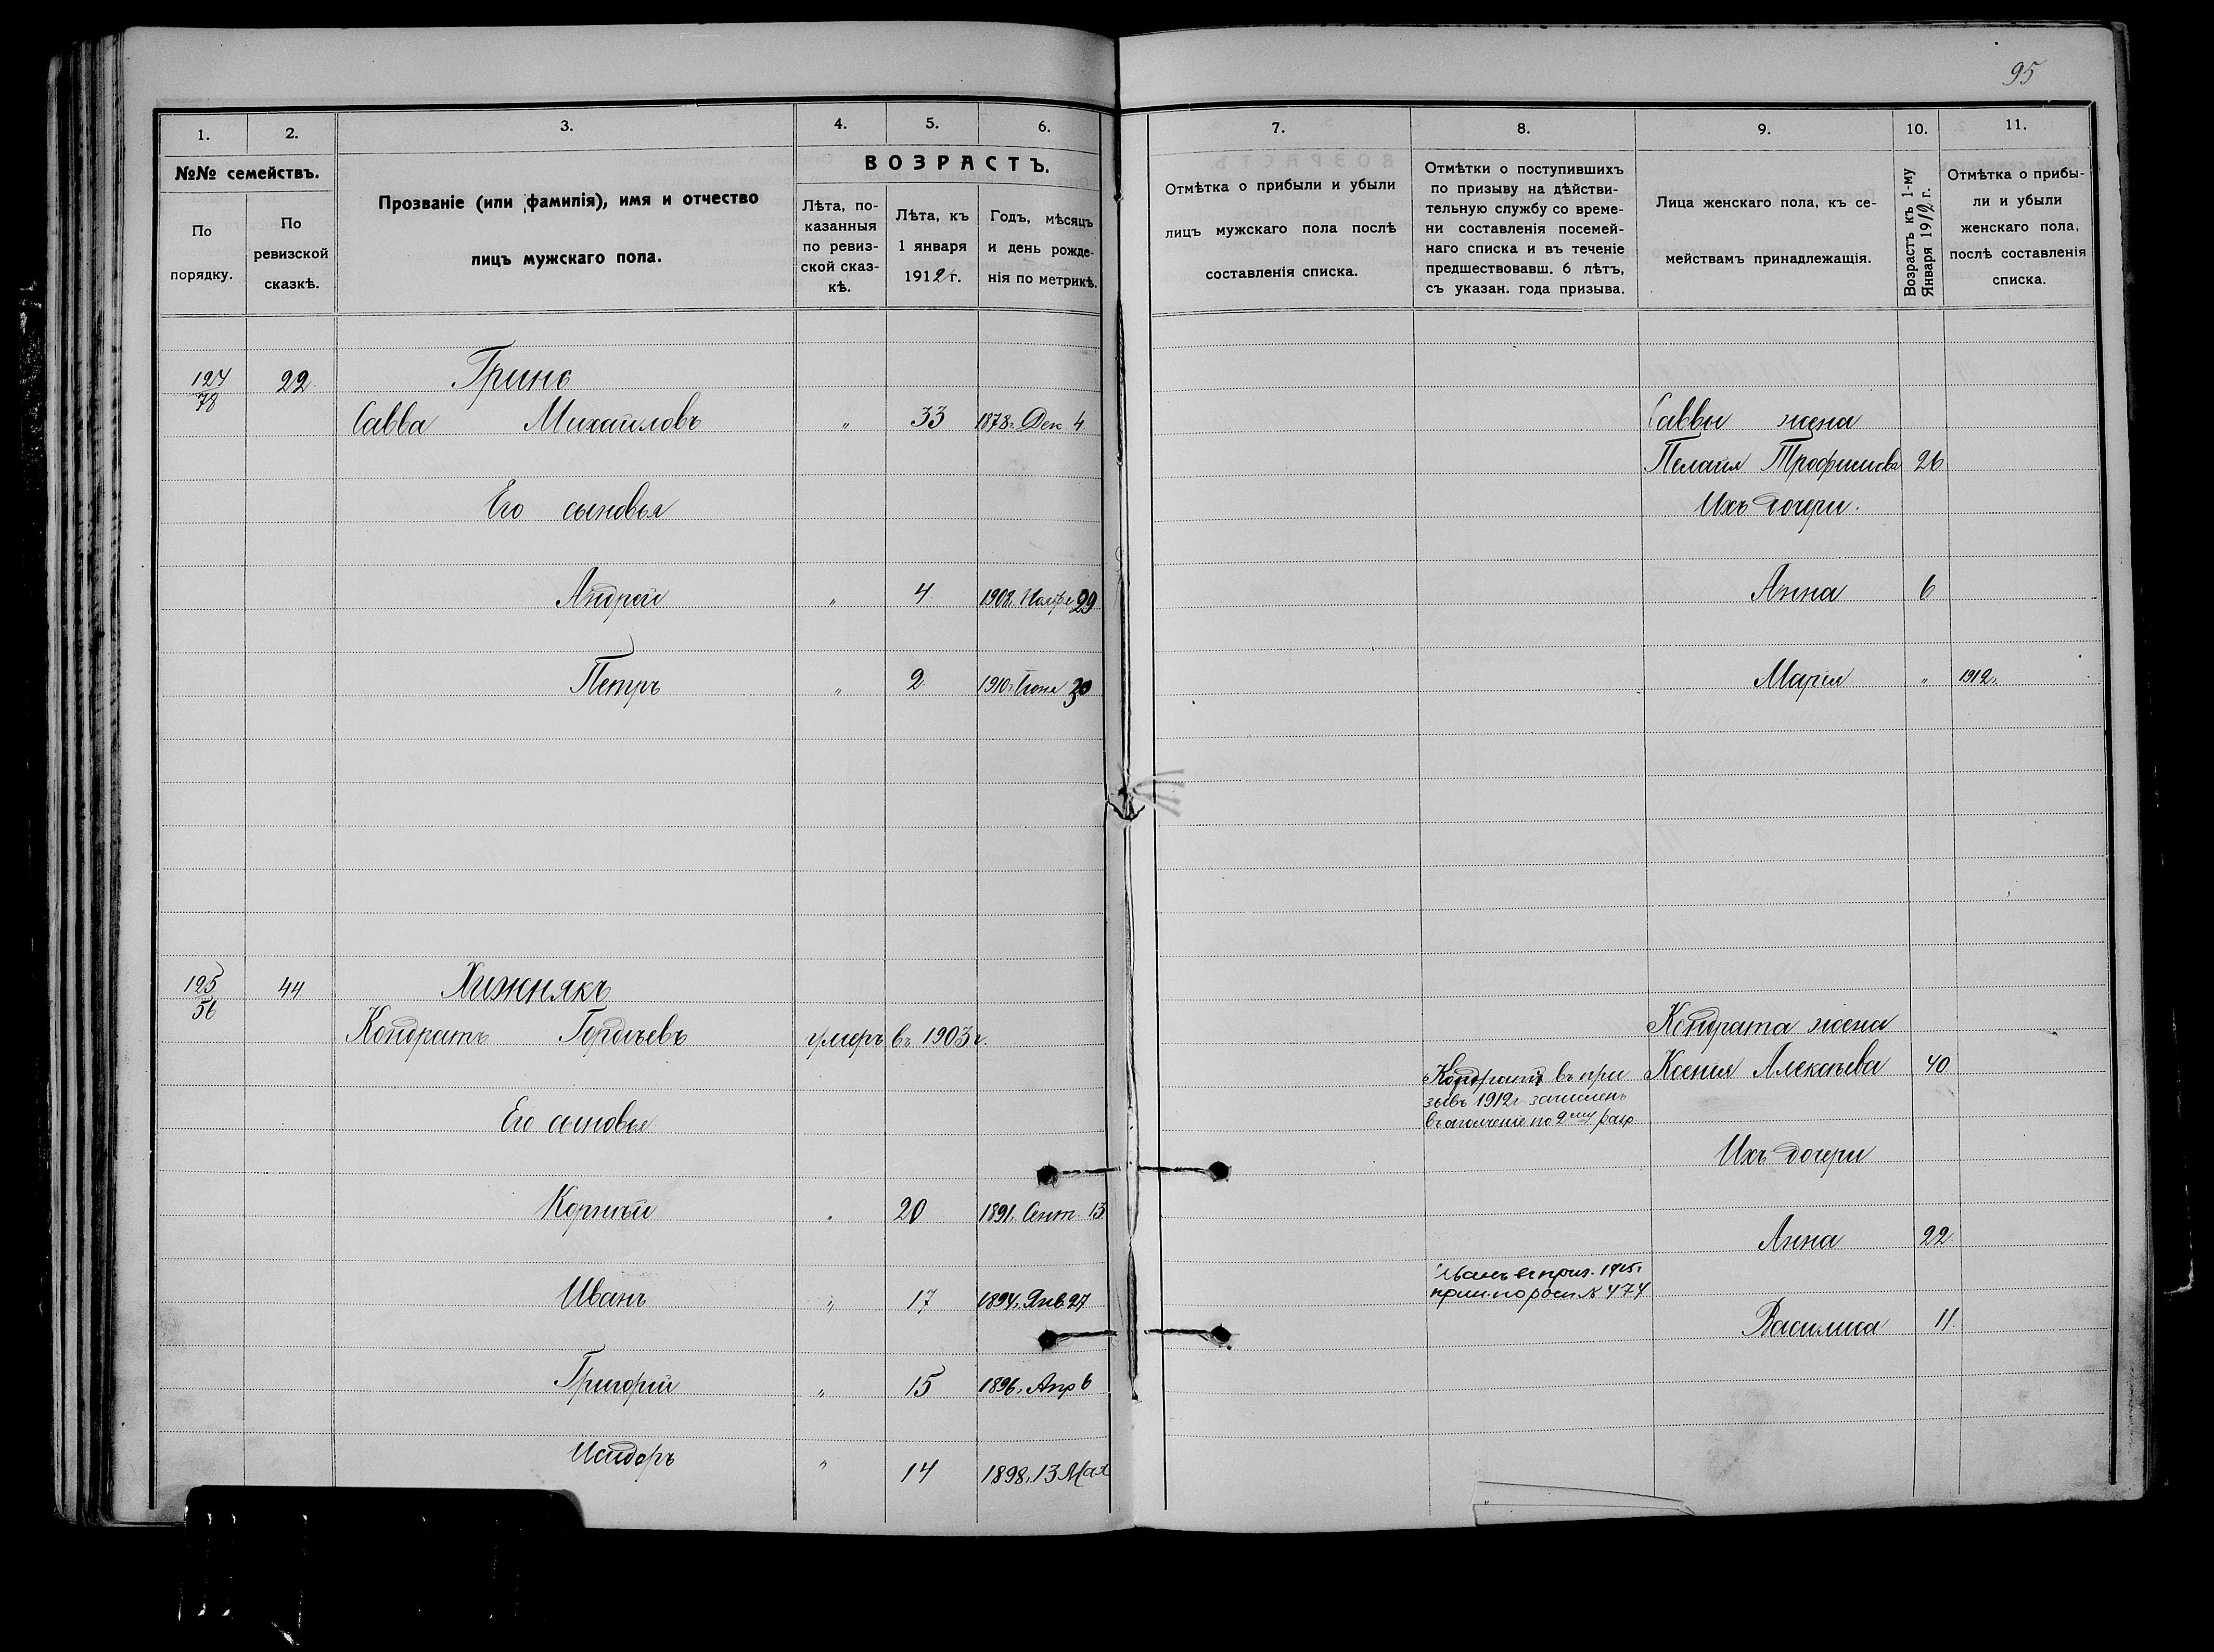 95
1.
2.
3.
4.
5.
6.
№№ семействъ.
По порядку.
По ревизской сказкѣ.
Прозваніе (или фамилія), имя и отчество
лицъ мужскаго пола.
ВОЗРАСТЪ.
Лѣта, по-
казанныя
по ревиз-
ской сказ-
кѣ.
Лѣта, къ
1 января
1912 г.
Годъ, мѣсяцъ
и день рожде-
нія по метрикѣ.
7.
8.
9.
10.
11.
Отмѣтка о прибыли и убыли
лицъ мужскаго пола послѣ
составленія списка.
Отмѣтки о поступившихъ
по призыву на дѣйстви-
тельную службу со време-
ни составленія посемей-
наго списка и въ теченіе
предшествовавш. 6 лѣтъ,
съ указан. года призыва.
Лица женскаго пола, къ се-
мействамъ принадлежащія.
Возрастъ къ 1-му
Января 1912 г.
Отмѣтка о прибы-
ли и убыли
женскаго пола,
послѣ составленія
списка.
124
78
22
Гринь
Савва Михайловъ " 33 1878 г. Дек 4
Его сыновья
Андрей " 4 1908 г. Ноября 29
Петръ " 2 1910 г. Іюня 30
Саввы жена
Пелагія Трофимова 26
Ихъ дочери.
Анна 6
Марія " 1912 г.
125
56
44
Хижнякъ
Кондратъ Гордѣевъ умеръ въ 1903 г.
Его сыновья
Корнѣй " 20 1891 г. Сент. 13
Иванъ " 17 1894 г. Янв. 27
Григорій " 15 1896 г. Апр 6
Исидоръ " 14 1898 г. 13 Мая
Кондратъ въ при
зывъ 1912 г. зачисленъ
въ ополченіе по 2му разр
Иванъ въ приз. 1915 г.
прин. по росп № 474
Кондрата жена
Ксенія Алексѣева 40
Ихъ дочери
Анна 22
Василиса 11